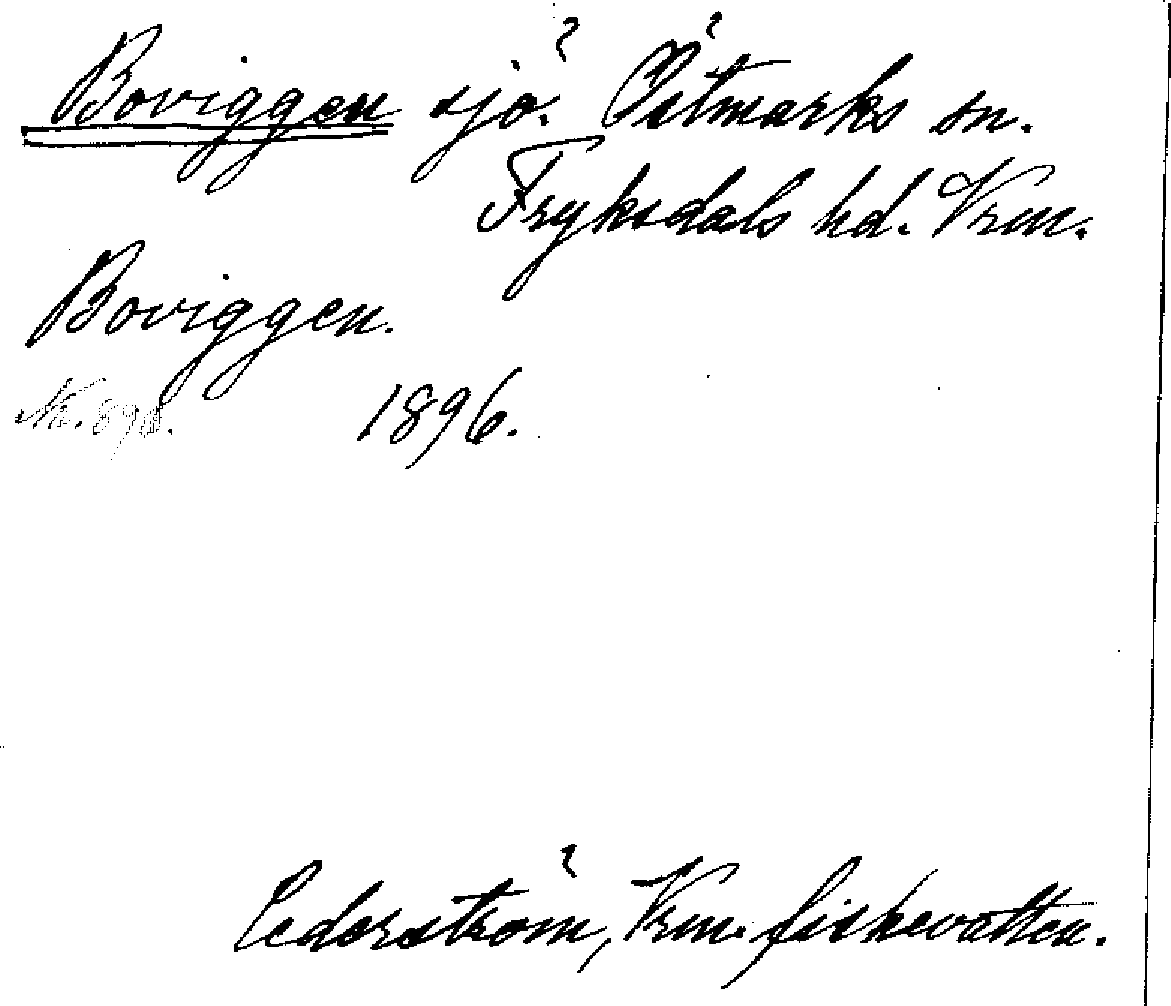 Boviggen sjö. Östmarks sn.
Fryksdals hd. Vrm.
Boviggen.
1896.
Cederström, Vrm. fiskevatten.